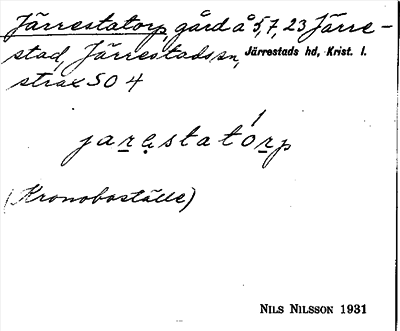 Järrestatorp, gård å 5,7,23 Järre-
stad, Järrestads sn, Järrestads hd, Krist. l.
strax SO 4
jarestatórp
(Kronoboställe)
NILS NILSSON 1931